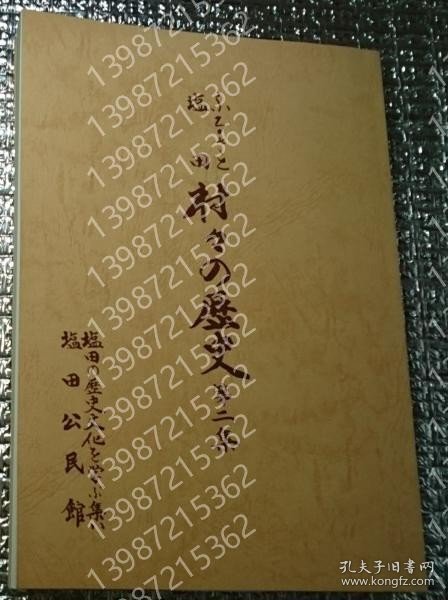 ふるさと
塩田
村々の歴史 第二集
塩田の歴史文化を学ぶ集い
塩田公民館
13987215362
13987215362
13987215362
13987215362
13987215362
13987215362
13987215362
13987215362
13987215362
13987215362
孔夫子旧书网
www.kongfz.com